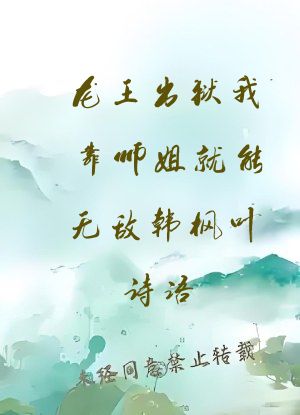 龙王出狱我
靠师姐就能
无敌韩枫叶
诗语
未经同意禁止转载